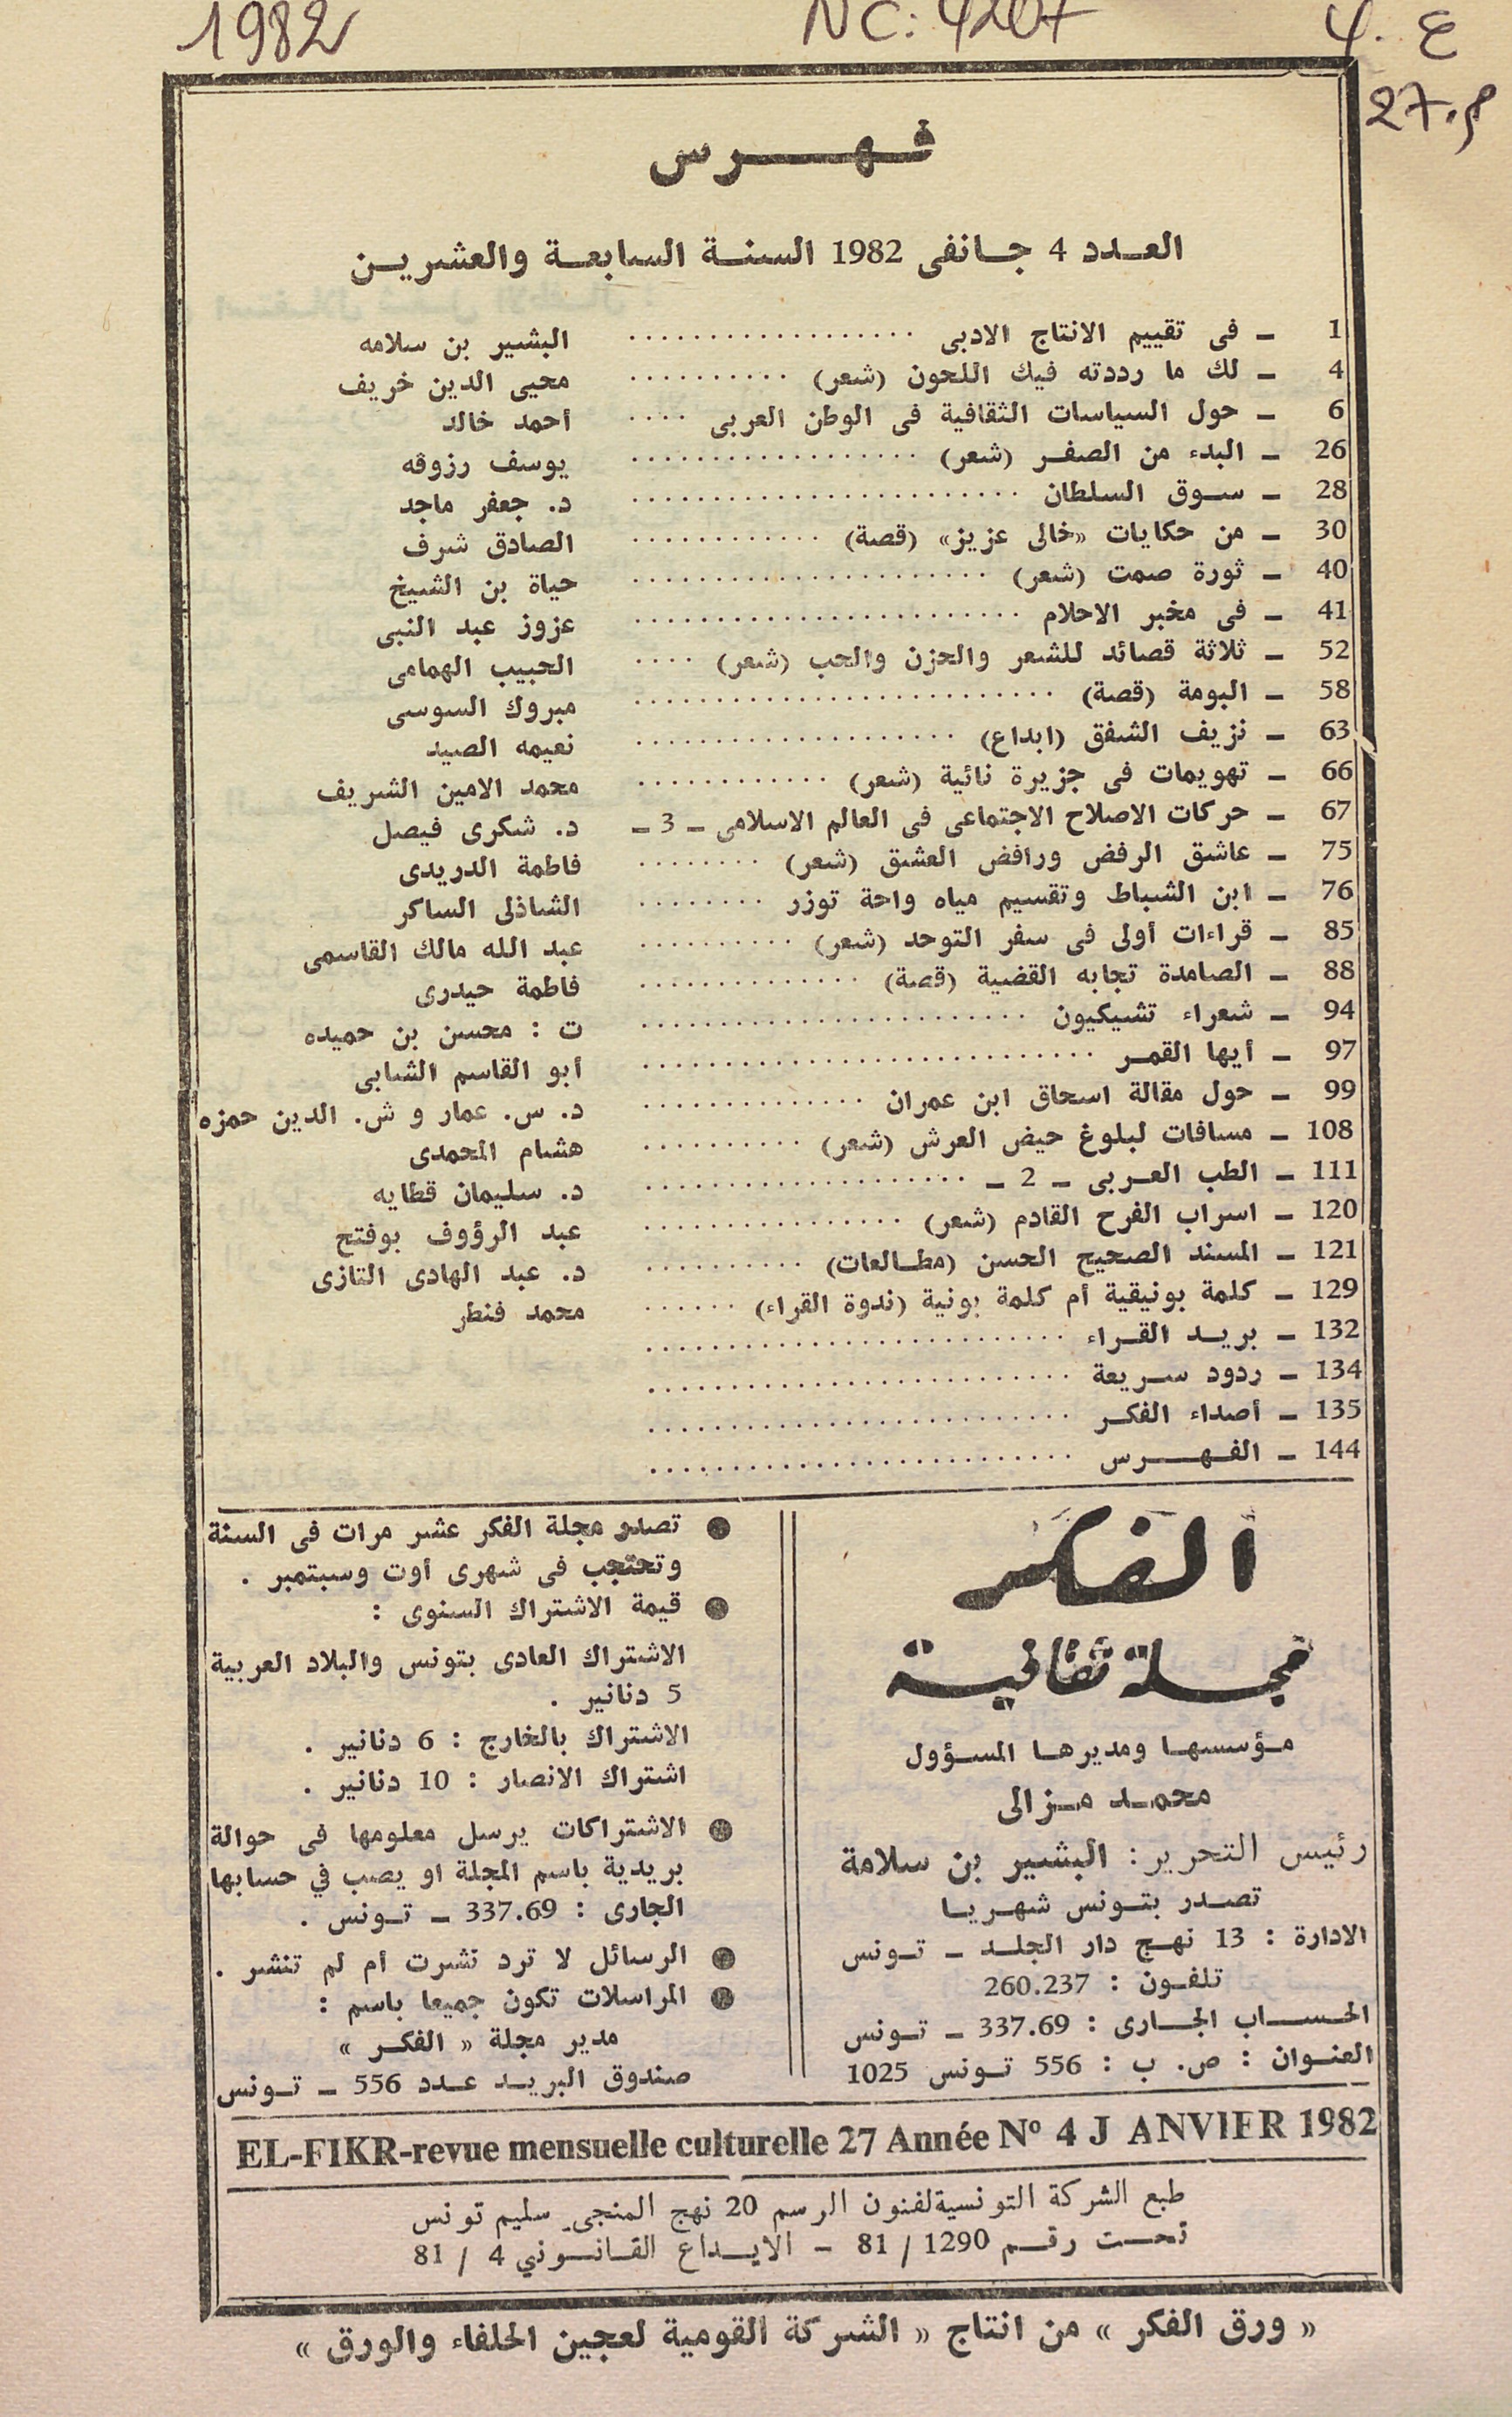 1982 NC: 4207 ع .4
27.م
فهرس
العدد 4 جانفى 1982 السنة السابعة والعشرين
1 ـ فى تقييم الانتاج الادبى .................. البشير بن سلامه
4 ـ لك ما رددته فيك اللحون (شعر) .......... محيى الدين خريف
6 ـ حول السياسات الثقافية فى الوطن العربى .... أحمد خالد
26 ـ البدء من الصفر (شعر) .................. يوسف رزوقه
28 ـ سوق السلطان ......................... د. جعفر ماجد
30 ـ من حكايات «خالى عزيز» (قصة) ............ الصادق شرف
40 ـ ثورة صمت (شعر) ...................... حياة بن الشيخ
41 ـ فى مخبر الاحلام ........................ عزوز عبد النبى
52 ـ ثلاثة قصائد للشعر والحزن والحب (شعر) .... الحبيب الهمامى
58 ـ البومة (قصة) .......................... مبروك السوسى
63 ـ نزيف الشفق (ابداع) .................... نعيمه الصيد
66 ـ تهويمات فى جزيرة نائية (شعر) ............ محمد الامين الشريف
67 ـ حركات الاصلاح الاجتماعى فى العالم الاسلامى ـ 3 ـ د. شكرى فيصل
75 ـ عاشق الرفض ورافض العشق (شعر) ........ فاطمة الدريدى
76 ـ ابن الشباط وتقسيم مياه واحة توزر ........ الشاذلى الساكر
85 ـ قراءات أولى فى سفر التوحد (شعر) .......... عبد الله مالك القاسمى
88 ـ الصامدة تجابه القضية (قصة) .............. فاطمة حيدرى
94 ـ شعراء تشيكيون ........................ ت : محسن بن حميده
97 ـ أيها القمر ............................ أبو القاسم الشابى
99 ـ حول مقالة اسحاق ابن عمران .............. د. س. عمار و ش. الدين حمزه
108 ـ مسافات لبلوغ حيض العرش (شعر) .......... هشام المحمدى
111 ـ الطب العربى ـ 2 ـ .................... د. سليمان قطايه
120 ـ اسراب الفرح القادم (شعر) ................ عبد الرؤوف بوفتح
121 ـ المسند الصحيح الحسن (مطالعات) .......... د. عبد الهادى التازى
129 ـ كلمة بونيقية أم كلمة بونية (ندوة القراء) ...... محمد فنطر
132 ـ بريد القراء ..........................
134 ـ ردود سريعة ..........................
135 ـ أصداء الفكر ..........................
144 ـ الفهرس ..........................
الفكر
مجلة ثقافية
مؤسسها ومديرها المسؤول
محمد مزالى
رئيس التحرير: البشير بن سلامة
تصدر بتونس شهريا
الادارة : 13 نهج دار الجلد ـ تونس
تلفون : 260.237
الحساب الجارى : 337.69 ـ تونس
العنوان : ص. ب : 556 تونس 1025
● تصدر مجلة الفكر عشر مرات فى السنة
وتحتجب فى شهرى أوت وسبتمبر .
● قيمة الاشتراك السنوى :
الاشتراك العادى بتونس والبلاد العربية
5 دنانير .
الاشتراك بالخارج : 6 دنانير .
اشتراك الانصار : 10 دنانير .
● الاشتراكات يرسل معلومها فى حوالة
بريدية باسم المجلة او يصب في حسابها
الجارى : 337.69 ـ تونس .
● الرسائل لا ترد نشرت أم لم تنشر .
● المراسلات تكون جميعا باسم :
مدير مجلة « الفكر »
صندوق البريد عدد 556 ـ تونس
EL-FIKR-revue mensuelle culturelle 27 Année N° 4 J ANVIER 1982
طبع الشركة التونسية لفنون الرسم 20 نهج المنجى سليم تونس
تحت رقم 1290 / 81 - الايداع القانوني 4 / 81
« ورق الفكر » من انتاج « الشركة القومية لعجين الحلفاء والورق »